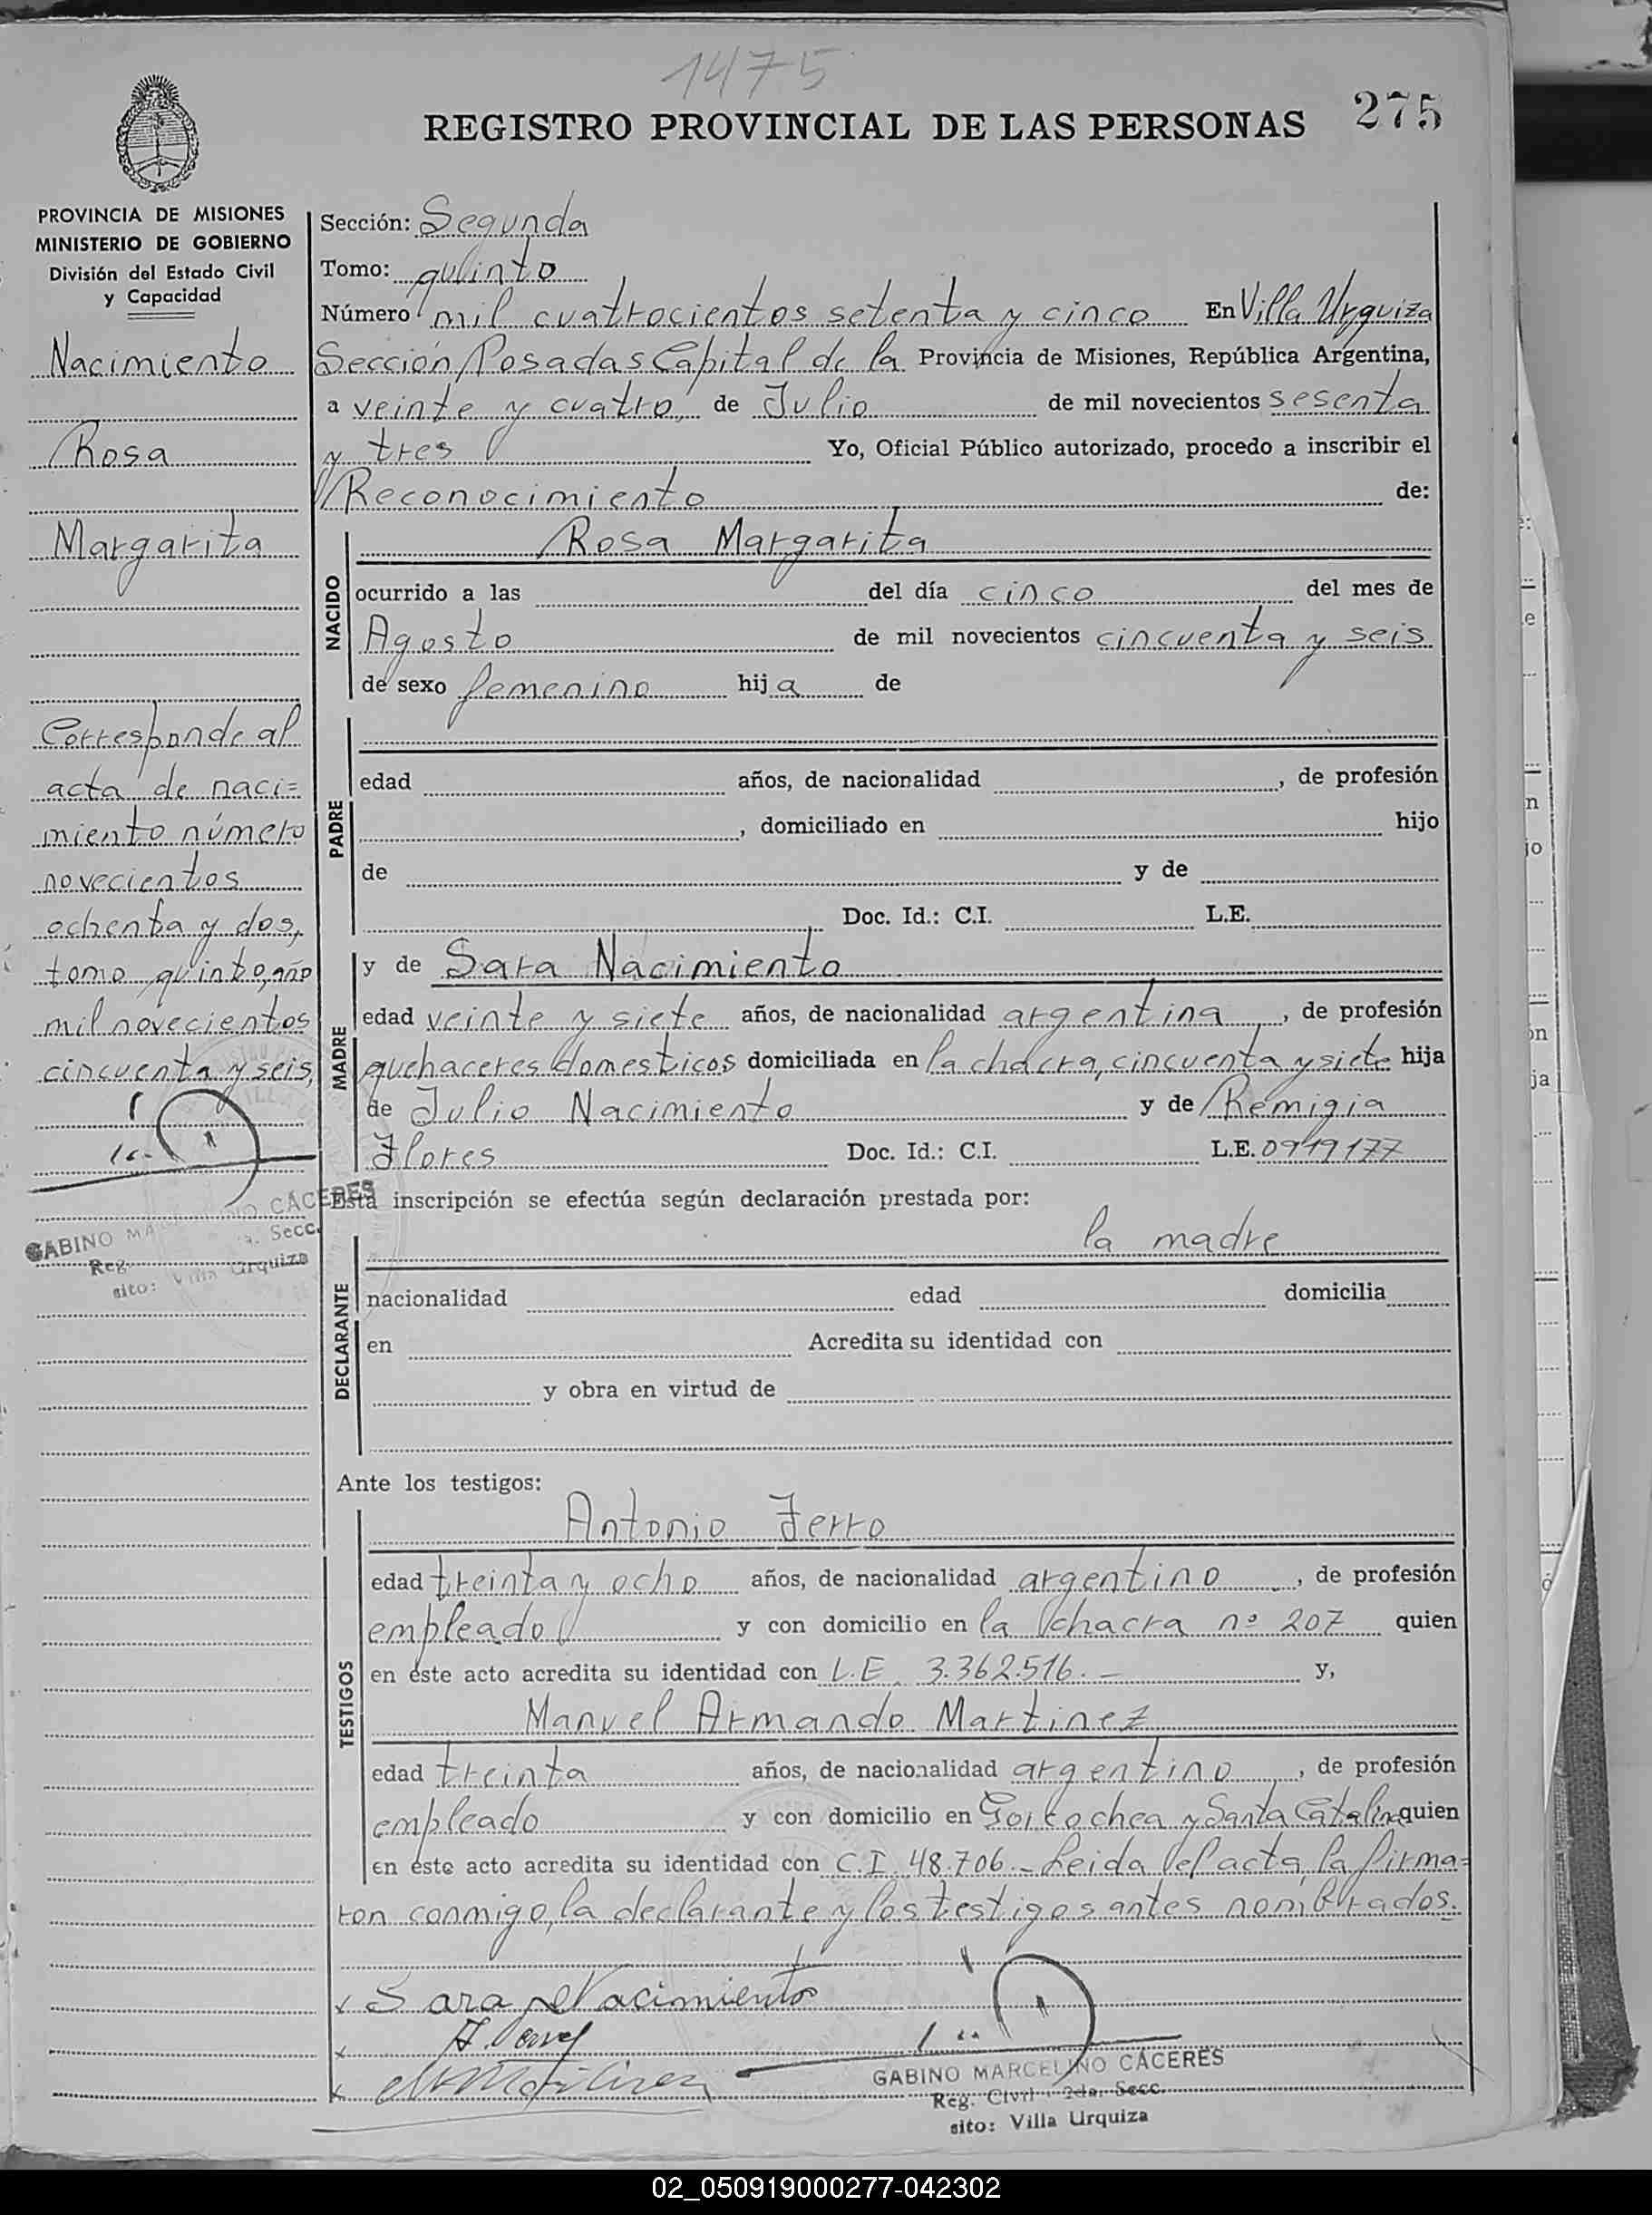 1475
275
REGISTRO PROVINCIAL DE LAS PERSONAS
PROVINCIA DE MISIONES
MINISTERIO DE GOBIERNO
División del Estado Civil
y Capacidad
Nacimiento
Rosa
Margarita
Corresponde al
acta de naci=
miento número
novecientos
ochenta y dos,
tomo quinto, año
mil novecientos
cincuenta y seis,
GABINO CÁCERES
Reg. Secc.
sito: Villa Urquiza
Sección: Segunda
Tomo: quinto
Número mil cuatrocientos setenta y cinco En Villa Urquiza
Sección Posadas Capital de la Provincia de Misiones, República Argentina,
a veinte y cuatro, de Julio de mil novecientos sesenta
y tres Yo, Oficial Público autorizado, procedo a inscribir el
Reconocimiento de:
NACIDO
Rosa Margarita
ocurrido a las del día cinco del mes de
Agosto de mil novecientos cincuenta y seis
de sexo femenino hija de
PADRE
edad años, de nacionalidad , de profesión
, domiciliado en hijo
de y de
Doc. Id.: C.I. L.E.
MADRE
y de Sara Nacimiento
edad veinte y siete años, de nacionalidad argentina , de profesión
quehaceres domesticos domiciliada en la chacra, cincuenta y siete hija
de Julio Nacimiento y de Remigia
Flores Doc. Id.: C.I. L.E. 0919177
Esta inscripción se efectúa según declaración prestada por:
DECLARANTE
la madre
nacionalidad edad domicilia
en Acredita su identidad con
y obra en virtud de
Ante los testigos:
TESTIGOS
Antonio Ferro
edad treinta y ocho años, de nacionalidad argentino , de profesión
empleado y con domicilio en la chacra nº 207 quien
en este acto acredita su identidad con L.E. 3.362.516.- y,
Manuel Armando Martinez
edad treinta años, de nacionalidad argentino , de profesión
empleado y con domicilio en Goicochea y Santa Catalina quien
en este acto acredita su identidad con C.I. 48.706.- Leida el acta, la firma=
ron conmigo, la declarante y los testigos antes nombrados.
x Sara Nacimiento
x
x
GABINO MARCELINO CÁCERES
Reg. Civil 2da. Secc.
sito: Villa Urquiza
02_050919000277-042302